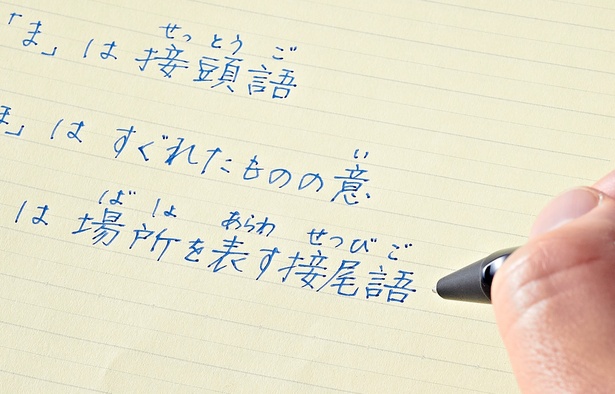 「ま」は接頭語
せっとうご
」はすぐれたものの意
い
は場所を表す接尾語
ばしょ あらわ せつびご